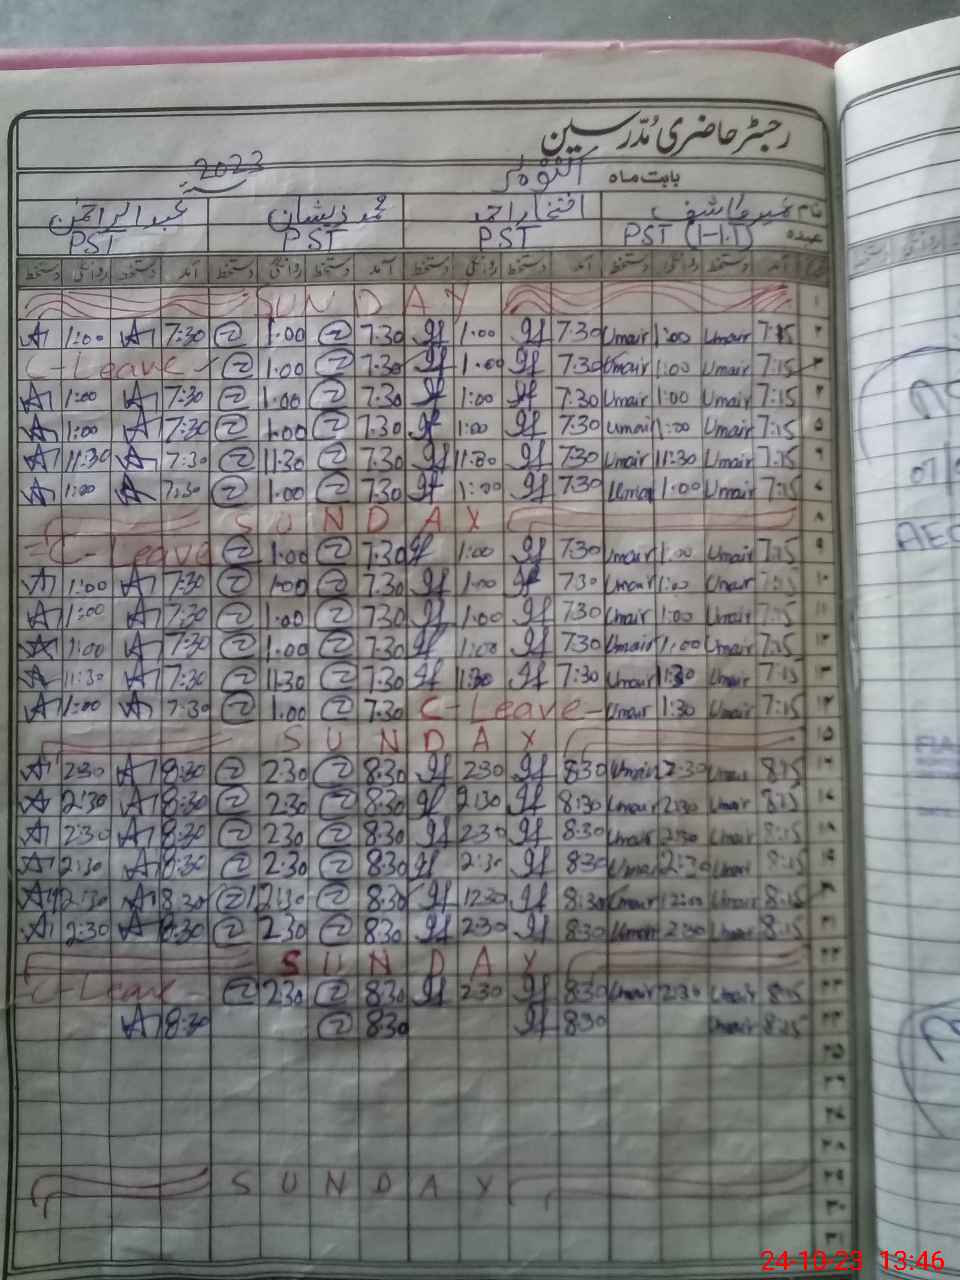 رجسٹر حاضری مُدرّسین
بابت ماہ اکتوبر 2023
نام عمیر کاشف افتخار احمد محمد ذیشان عبدالرحمٰن
عہدہ PST (I-I.T) PST PST PST
آمد دستخط روانگی دستخط آمد دستخط روانگی دستخط آمد دستخط روانگی دستخط آمد دستخط روانگی دستخط
۱ SUNDAY
1:00 7:30 1.00 7.30 1.00 7:30 Umair 1:00 Umair 7:15 ۲
C-Leave 1.00 7.30 1.00 7:30 Umair 1:00 Umair 7:15 ۳
1:00 7:30 1.00 7.30 1:00 7:30 Umair 1:00 Umair 7:15 ۴
1:00 7:30 1.00 7.30 1:00 7:30 Umair 1:00 Umair 7:15 ۵
11:30 7:30 11.30 7.30 11:30 7:30 Umair 11:30 Umair 7:15 ۶
1:00 7:30 1.00 7.30 1:00 7:30 1:00 Umair 7:15 ۷
SUNDAY ۸
C-Leave 1.00 7.30 1:00 7:30 Umair 1:00 Umair 7:15 ۹
1:00 7:30 1.00 7.30 1:00 7:30 Umair 1:00 Umair 7:15 ۱۰
1:00 7:30 1.00 7.30 1:00 7:30 Umair 1:00 Umair 7:15 ۱۱
1:00 7:30 1.00 7.30 1:00 7:30 Umair 1:00 Umair 7:15 ۱۲
11:30 7:30 11.30 7.30 11:30 7:30 Umair Umair 7:15 ۱۳
1:00 7:30 1.00 7.30 C-Leave Umair 1:30 Umair 7:15 ۱۴
SUNDAY ۱۵
2:30 8:30 2.30 8.30 2:30 8:30 Umair 2:30 Umair 8:15 ۱۶
2:30 8:30 2.30 8.30 2:30 8:30 Umair 2:30 Umair 8:15 ۱۷
2:30 8:30 2.30 8.30 2:30 8:30 Umair 2:30 Umair 8:15 ۱۸
2:30 8:30 2.30 8.30 2:30 8:30 Umair 2:30 Umair 8:15 ۱۹
12:30 8:30 12:30 8.30 12:30 8:30 Umair 12:00 Umair 8:15 ۲۰
2:30 8:30 2.30 8.30 2:30 8:30 Umair 2:30 Umair 8:15 ۲۱
SUNDAY ۲۲
C-Leave 2.30 8.30 2:30 8:30 Umair 2:30 Umair 8:15 ۲۳
8:30 8.30 8:30 Umair 8:15 ۲۴
۲۵
۲۶
۲۷
۲۸
SUNDAY ۲۹
۳۰
۳۱
24-10-23 13:46